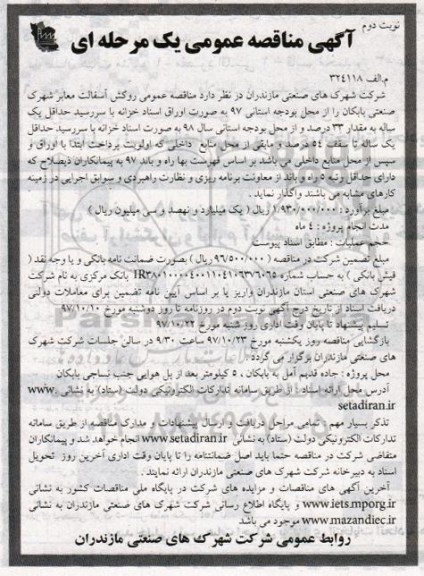 نوبت دوم
آگهی مناقصه عمومی یک مرحله ای
م.الف ۳۲۴۱۱۸
شرکت شهرک های صنعتی مازندران در نظر دارد مناقصه عمومی روکش آسفالت معابر شهرک
صنعتی بابکان را از محل بودجه استانی ۹۷ به صورت اوراق اسناد خزانه با سررسید حداقل یک
ساله به مقدار ۳۳ درصد و از محل بودجه استانی سال ۹۸ به صورت اسناد خزانه با سررسید حداقل
یک ساله تا سقف ۵٤ درصد و مابقی از محل منابع داخلی که اولویت پرداخت ابتدا با اوراق و
سپس از محل منابع داخلی می باشد بر اساس فهرست بها راه و باند ۹۷ به پیمانکاران ذیصلاح که
دارای حداقل رتبه ۵ راه و باند از معاونت برنامه ریزی و نظارت راهبردی و سوابق اجرایی در زمینه
کارهای مشابه می باشند واگذار نماید .
مبلغ برآورد : ۱/۹۳۰/۰۰۰/۰۰۰ ریال ( یک میلیارد و نهصد و سی میلیون ریال )
مدت انجام پروژه : ٤ ماه
حجم عملیات : مطابق اسناد پیوست
مبلغ تضمین شرکت در مناقصه ( ۹۶/۵۰۰/۰۰۰ ریال ) بصورت ضمانت نامه بانکی و یا وجه نقد (
فیش بانکی ) به حساب شماره بانک مرکزی به نام شرکت
شهرک های صنعتی استان مازندران واریز یا بر اساس آیین نامه تضمین برای معاملات دولتی
دریافت اسناد از تاریخ درج آگهی نوبت دوم در روزنامه تا روز دوشنبه مورخ ۹۷/۱۰/۱۰
تسلیم پیشنهاد تا پایان وقت اداری روز شنبه مورخ ۹۷/۱۰/۲۲
بازگشایی مناقصه روز یکشنبه مورخ ۹۷/۱۰/۲۳ ساعت ۹/۳۰ در سالن جلسات شرکت شهرک
های صنعتی مازندران برگزار می گردد
محل پروژه : جاده قدیم آمل به بابکان ، ۵ کیلومتر بعد از پل هوایی جنب نساجی بابکان
آدرس محل ارائه اسناد : از طریق سامانه تدارکات الکترونیکی دولت (ستاد) به نشانی www.
setadiran.ir
تذکر بسیار مهم : تمامی مراحل دریافت و ارسال پیشنهادات و مدارک مناقصه از طریق سامانه
تدارکات الکترونیکی دولت (ستاد) به نشانی www.setadiran.ir انجام خواهد شد و پیمانکاران
متقاضی شرکت در مناقصه حتما باید اصل ضمانتنامه را تا پایان وقت اداری آخرین روز تحویل
اسناد به دبیرخانه شرکت شهرک های صنعتی مازندران ارائه نمایند .
آخرین آگهی های مناقصات و مزایده های شرکت در پایگاه ملی مناقصات کشور به نشانی
www.iets.mporg.ir و پایگاه اطلاع رسانی شرکت شهرک های صنعتی مازندران به نشانی
www.mazandiec.ir موجود می باشد
روابط عمومی شرکت شهرک های صنعتی مازندران